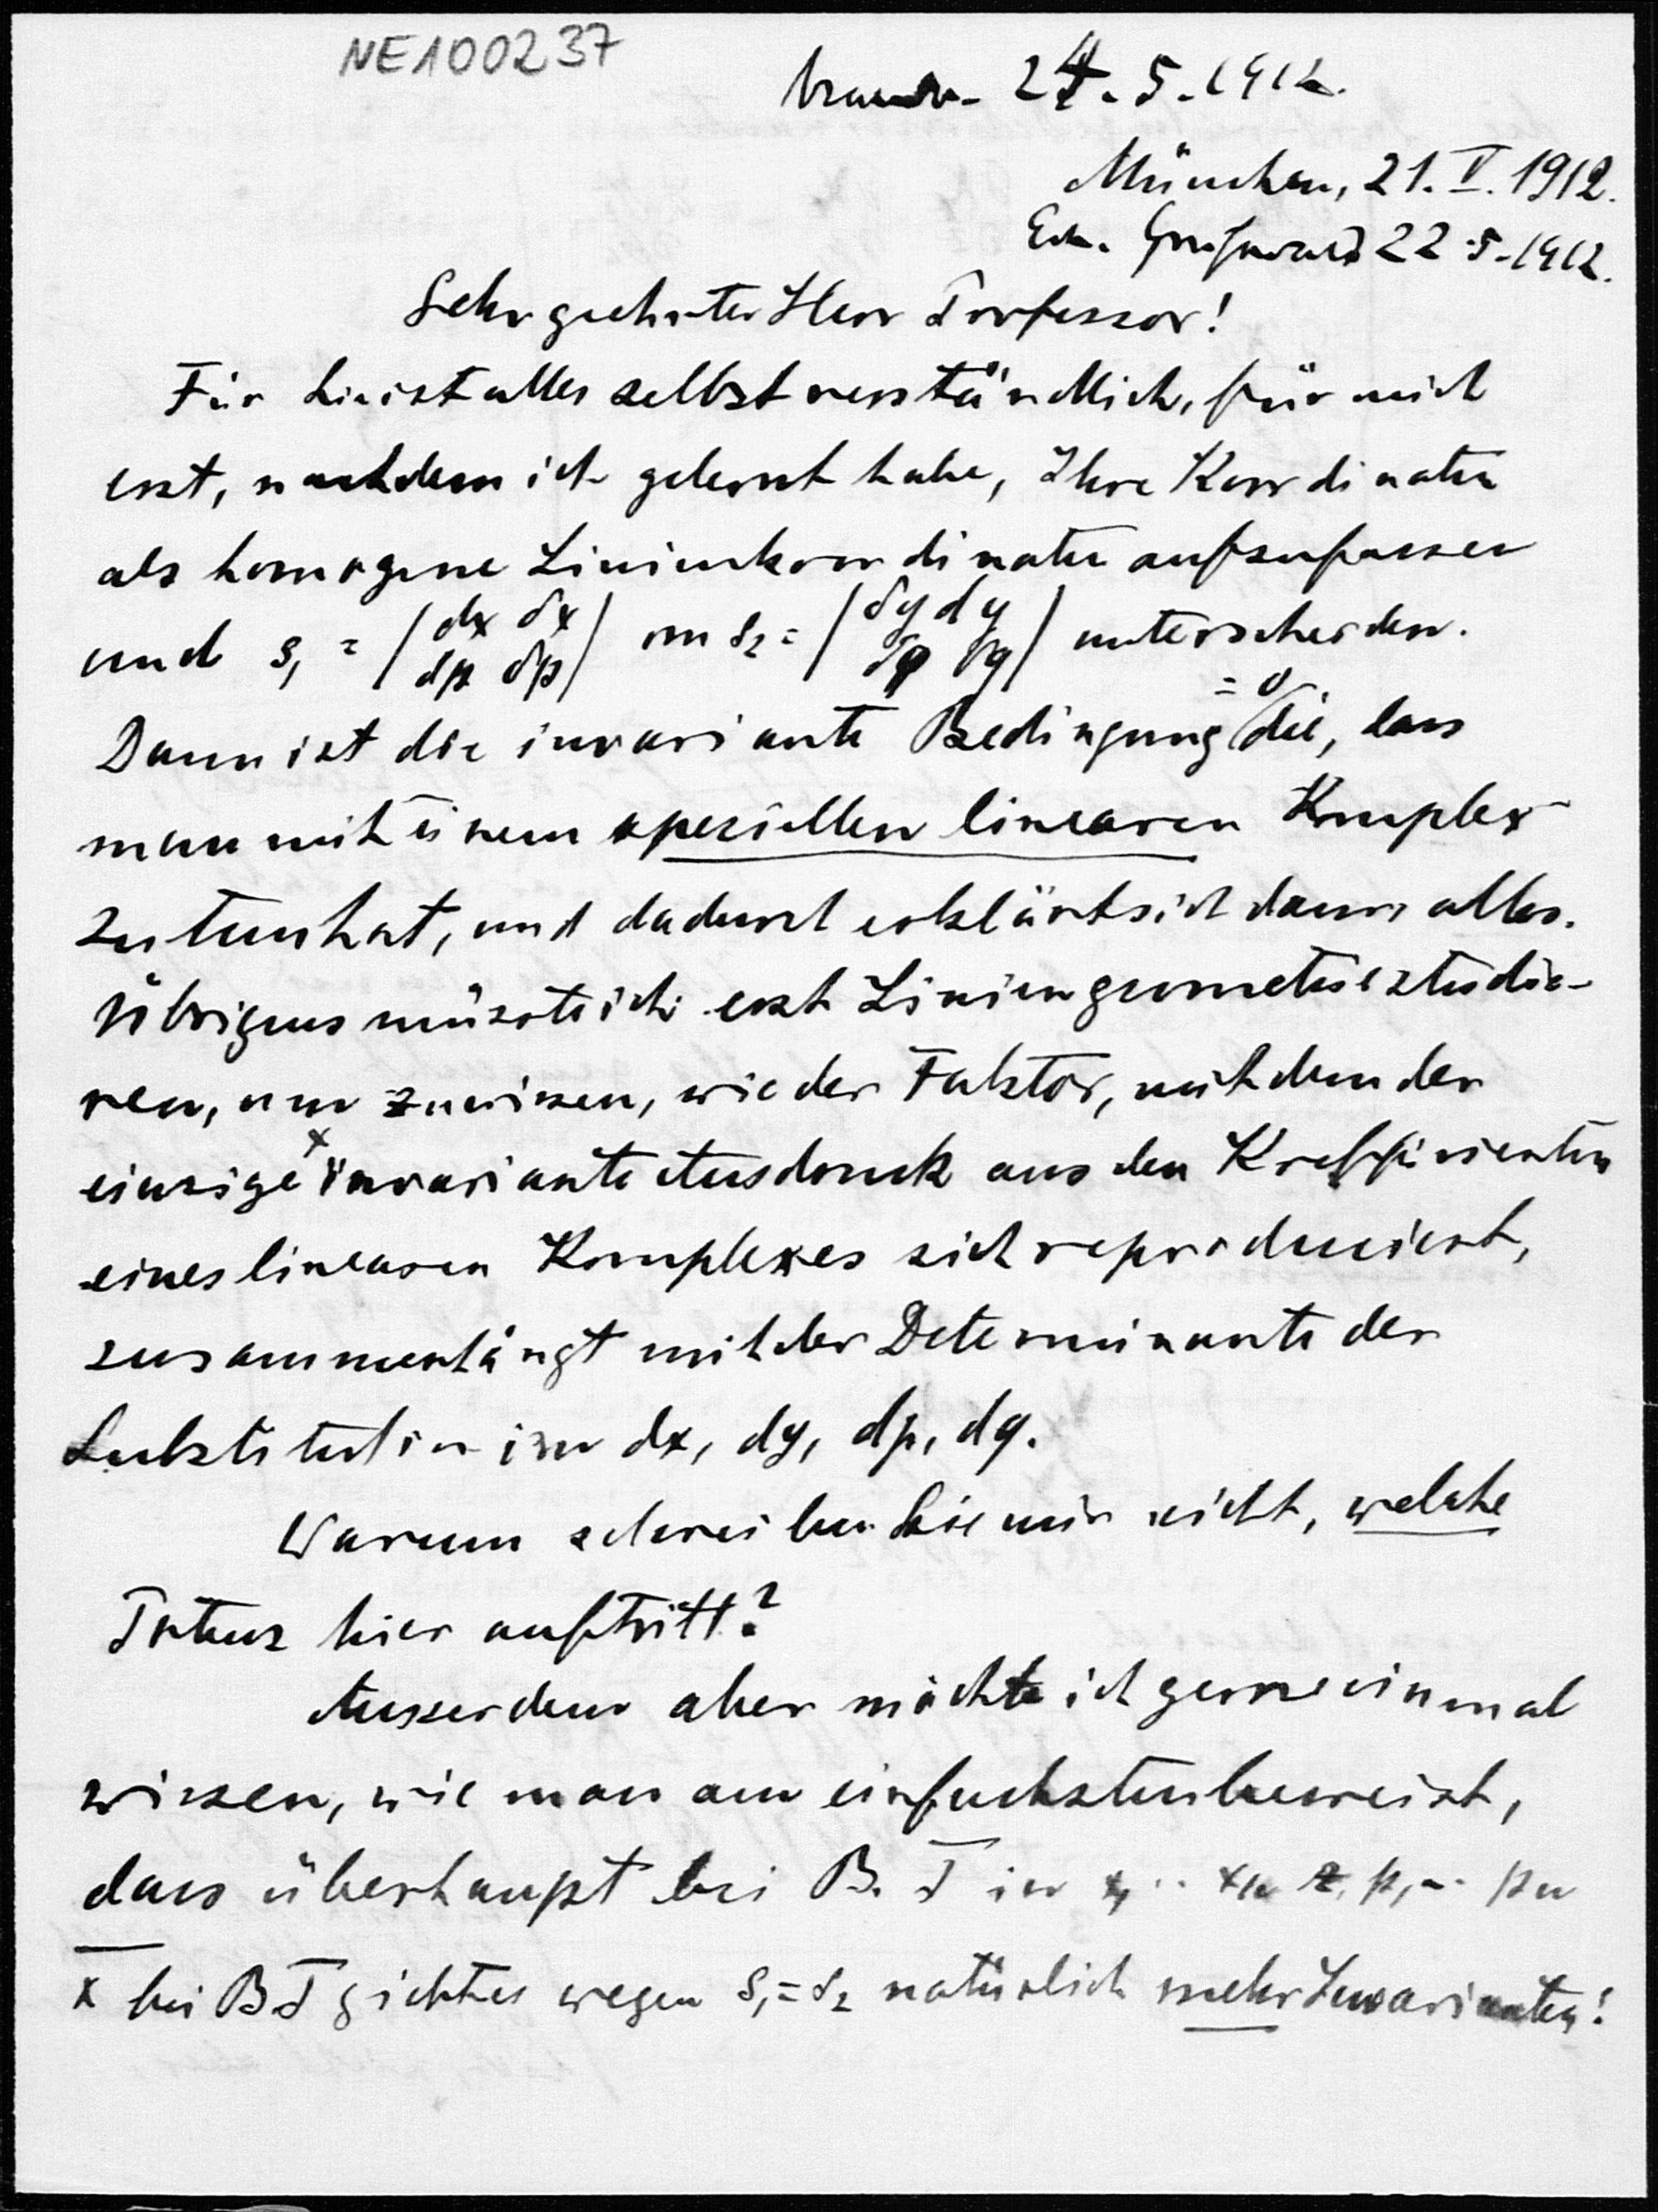 NE100237
24. 5. 1912.
München, 21. V. 1912.
Greifswald 22 5. 1912.
Sehr geehrter Herr Professor!
Für Sie ist alles selbstverständlich, für mich
erst, nachdem ich gelernt habe, Ihre Koordinaten
als homogene Linienkoordinaten aufzufassen
und s₁ = |dx δx / dp δp| von s₂ = |δy dy / δq dq| unterscheiden.
Dann ist die invariante Bedingung = 0 die, dass
man mit einem speziellen linearen Komplex
zu tun hat, und dadurch erklärt sich dann alles.
Übrigens müsste ich erst Liniengeometrie studie-
ren, um zu wissen, wie der Faktor, mit dem der
einzige x invariante Ausdruck aus den Koeffizienten
eines linearen Komplexes sich reproduciert,
zusammenhängt mit der Determinante der
Substitution in dx, dy, dp, dq.
Warum schreiben Sie mir nicht, welche
Potenz hier auftritt?
Ausserdem aber möchte ich gerne einmal
wissen, wie man am einfachsten beweist,
dass überhaupt bei B. T in x₁ .. xₙ z, p₁ .. pₙ
x bei BT giebt es wegen s₁ = s₂ natürlich mehr Invarianten!